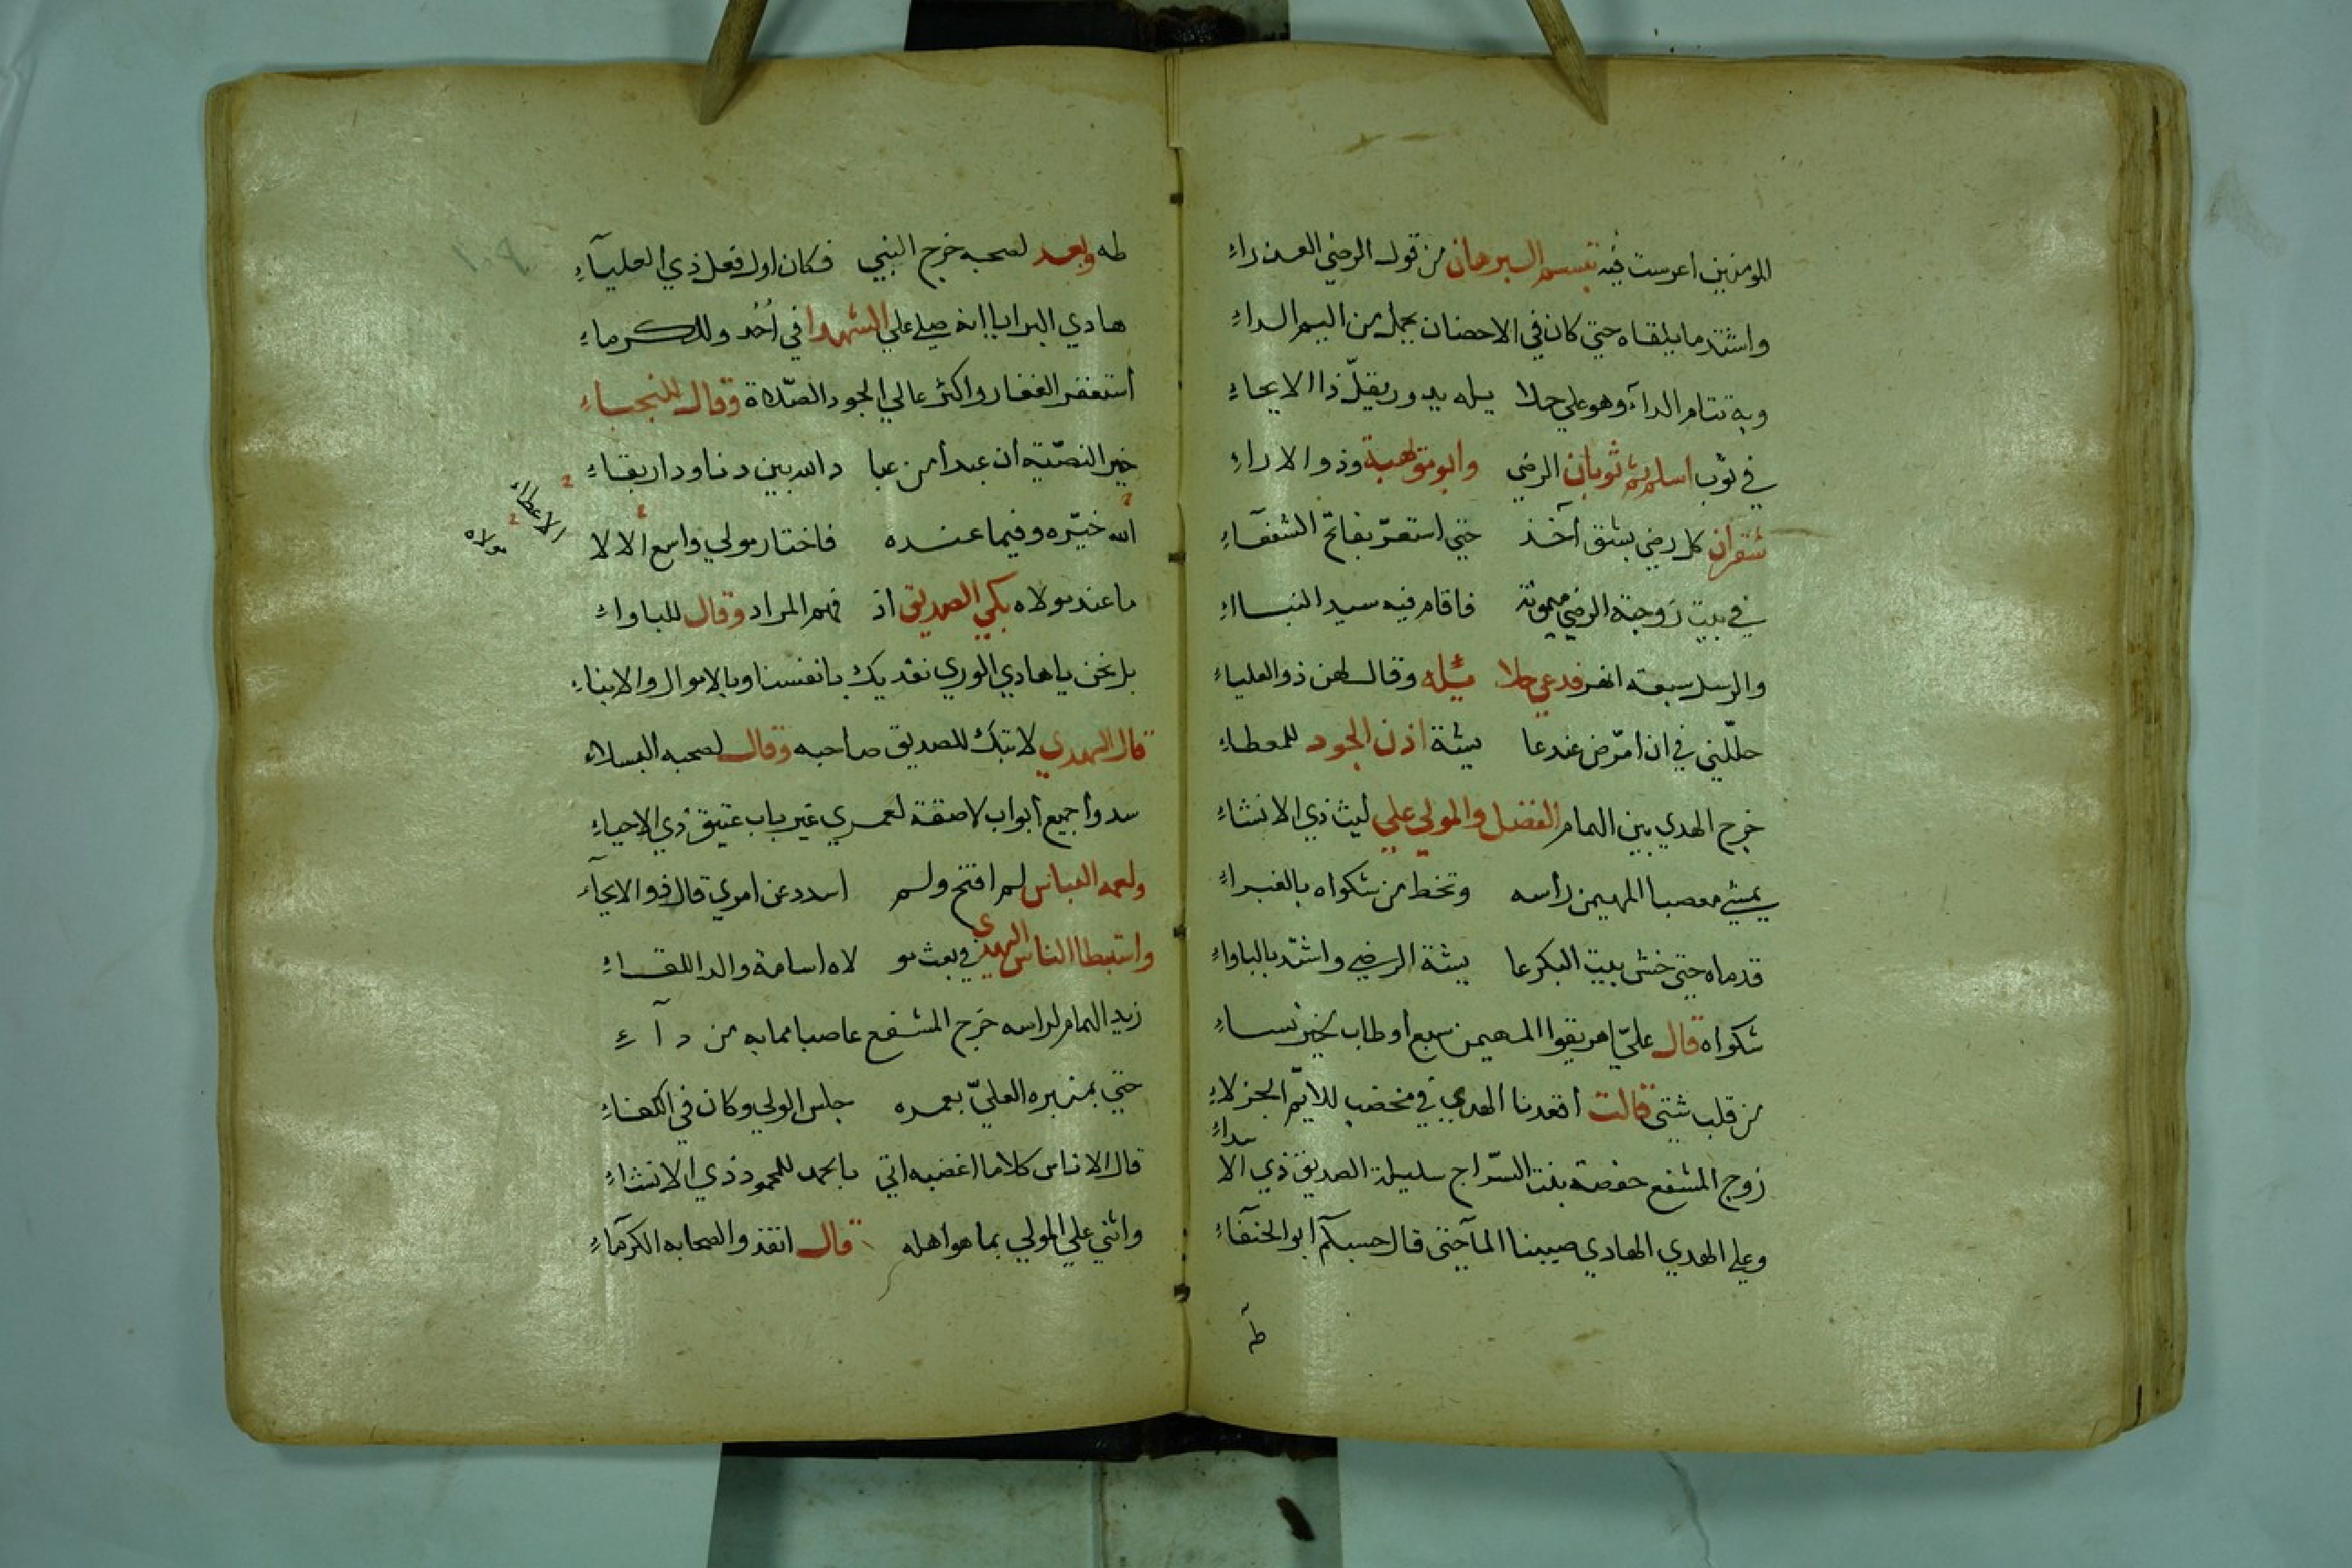 المومنين اعرست فيه تبسم البرهان من قول الرضي العذراء
واشتد ما يلقاه حتى كان في الاحضان يحمل من اليم الداء
وبه تتام الداء وهو علي حلا يله يدور يقل ذا الايحاء
في ثوب اسلم ثم ثوبان الرضي وابو مويهبة وذو الاراء
شقران كل رضي بشق آخذ حتي استقر بفاتح الشفعاء
في بيت زوجته الرضي ميمونة فاقام فيه سيد النبااء
والرسل سبعة انفر فدعي حلا يله وقال لهن ذو العلياء
حللنني في ان امرض عند عا يشة اذن الجود للمعطاء
خرج الهدي بين الهمام الفضل والمولي علي ليث ذي الانشاء
يمشي معصبا المهيمن راسه وتخط من شكواه بالغبراء
قدماه حتى خش بيت البكر عا يشة الرضي واشتد بالباواء
شكواه قال علي اهريقوا المهيمن سبع اوطاب لخير نساء
من قلب شتى قالت اقعدنا الهدي في مخضب للايم الجزلاء
سداء
زوج المشفع حفصة بنت السراج سليلة الصديق ذي الا
وعلي الهدي الهادي صببنا المآ حتى قال حسبكم ابو الحنفاء
طه
طه وبعد لصحبه خرج النبي فكان اول فعل ذي العلياء
هادي البرايا انه صلي علي الشهدا في أحد وللكرماء
أستغفر الغفار واكثر عالي الجود الصلاة وقال للنجباء
خير النصية أن عبدا من عبا دالله بين دنا ودار بقاء
الله خيره وفيما عنده فاختار مولي واسع الالا
الاعطاء
مولاه
ما عند مولاه بكي الصديق اذ فهم المراد وقال للباواء
بل نحن يا هادي الوري نفديك بانفسنا وبالاموال والابناء
قال الهدي لا تبك للصديق صاحبه وقال لصحبه البسلاء
سدوا جميع أبواب لاصقة لعمري غير باب عتيق ذي الاحياء
ولعمه العباس لم افتح ولم اسدد عن امري قال ذو الايحآء
واستبطا الناس الهدي في بعث مو لاه اسامة والد اللقاء
زيد الهمام لراسه خرج المشفع عاصبا مما به من دآء
حتي بمنبره العلي بعمده جلس الولي وكان في الكفاء
قال الاناس كلاما اغضبه اتي بالحمد للمحمود ذي الانشاء
واثني علي المولي بما هو اهله قال انفذوا لصحابه الكرماء